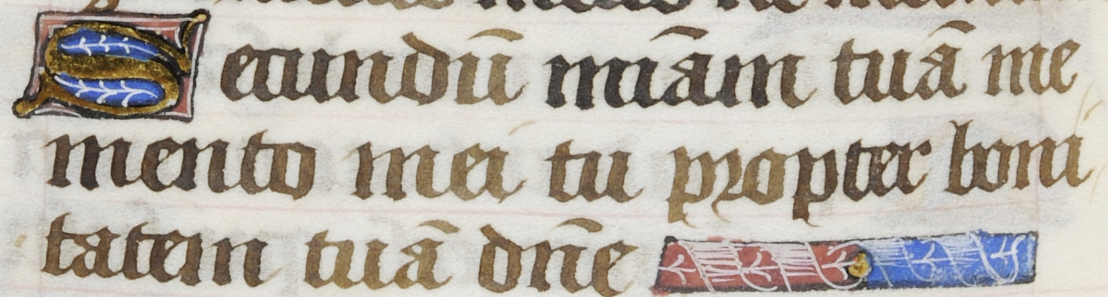 Secundū miām tuā me
mento mei tu propter boni
tatem tuā dn̄e